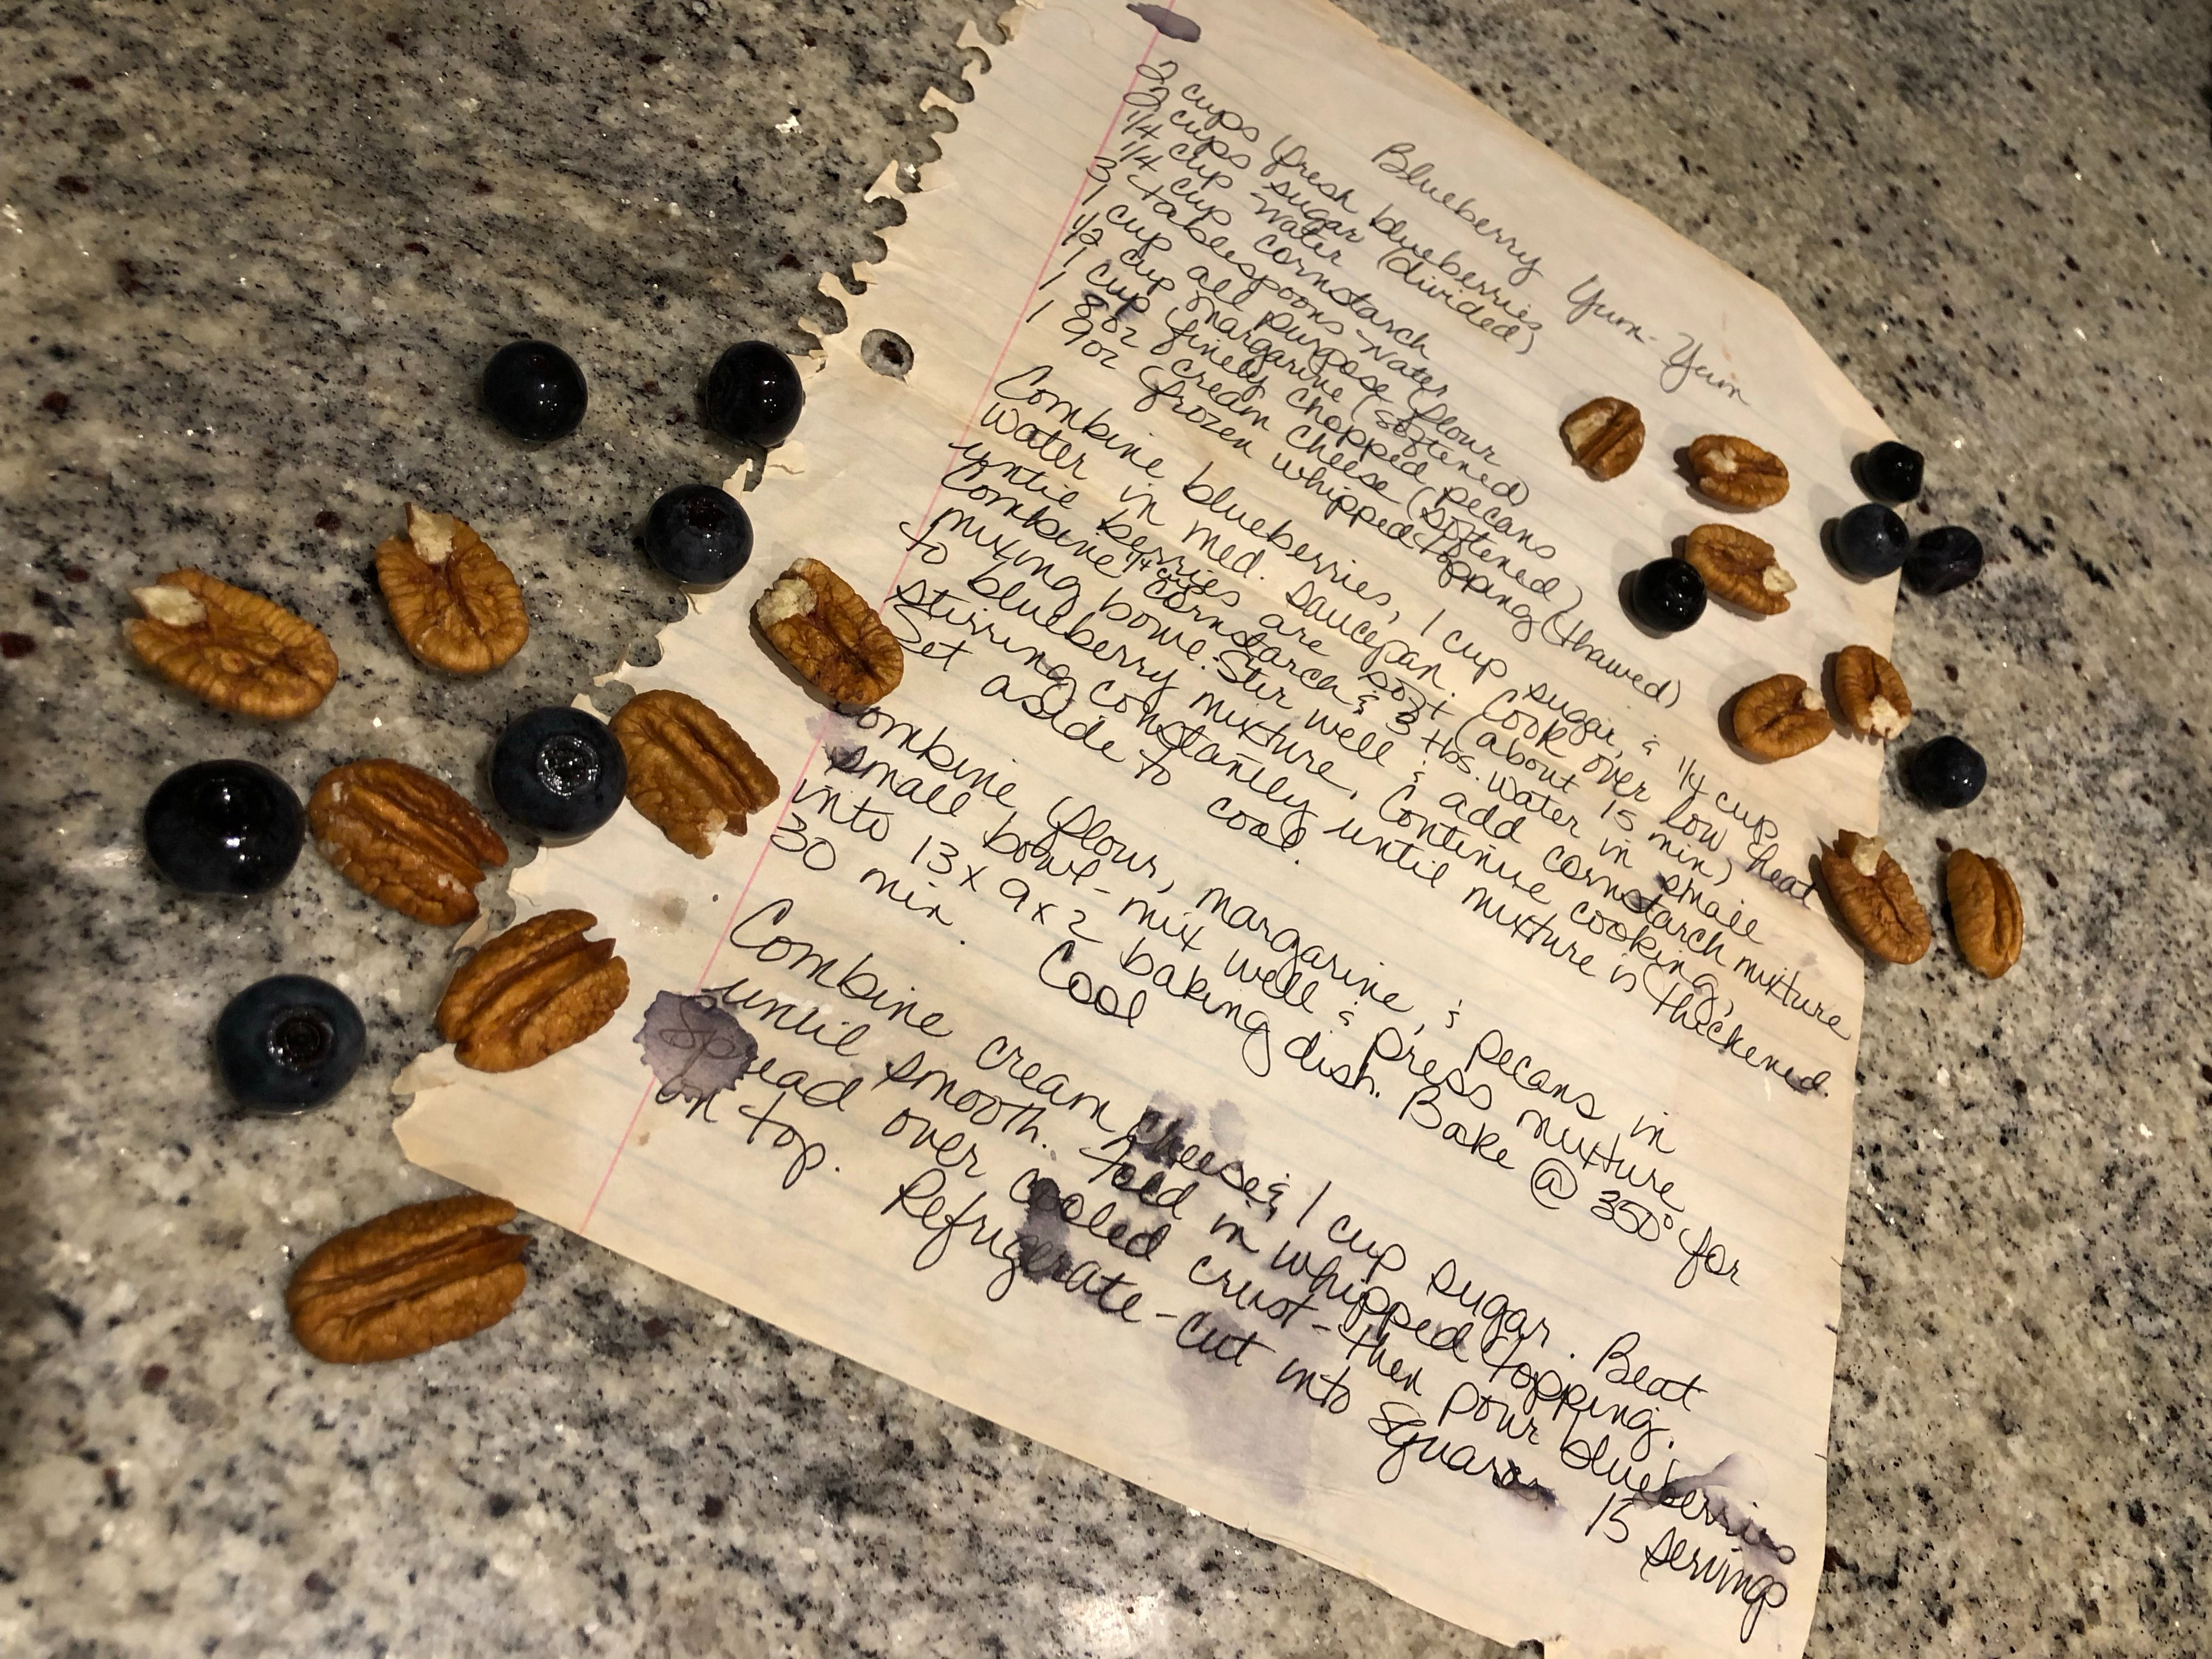 Blueberry Yum-Yum
2 cups fresh blueberries
2 cups sugar (divided)
1/4 cup water
1/4 cup cornstarch
3 tablespoons water
1 cup all purpose flour
1/2 cup margarine (softened)
1 cup finely chopped pecans
1 8oz cream cheese (softened)
1 9oz frozen whipped topping (thawed)
Combine blueberries, 1 cup sugar, & 1/4 cup
water in med. saucepan. Cook over low heat
until berries are soft (about 15 min)
Combine 1/4 cup cornstarch & 3 tbs. water in small
mixing bowl. Stir well & add cornstarch mixture
to blueberry mixture, Continue cooking,
stirring constantly until mixture is thickened.
Set aside to cool.
Combine flour, margarine, & pecans in
small bowl - mix well & press mixture
into 13 x 9 x 2 baking dish. Bake @ 350° for
30 min. Cool
Combine cream cheese & 1 cup sugar. Beat
until smooth. Fold in whipped topping.
Spread over cooled crust - then pour blueberries
on top. Refrigerate - cut into squares
15 servings